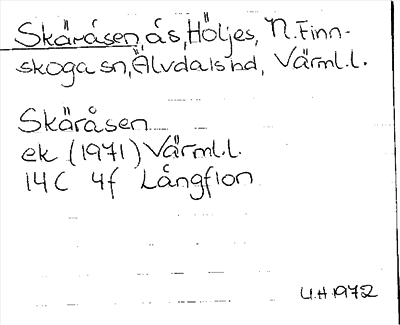 Skäråsen, ås, Höljes, N. Finn-
skoga sn, Älvdals hd, Värml.l.
Skäråsen
ek (1971) Värml.l.
14C 4f Långflon
U.H 1972